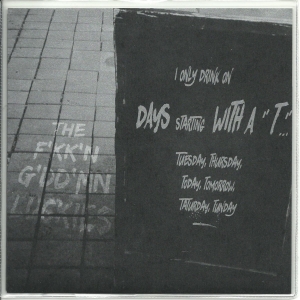 THE
F'KK'N
G'DD'NN
I ONLY DRINK ON
DAYS STARTING WITH A "T"...
TUESDAY, THURSDAY,
TODAY, TOMORROW,
TATURDAY, TUNDAY